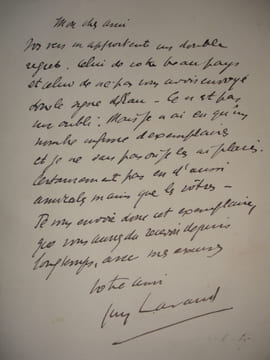 Mon cher ami
Vos vers m'apportent un double
regret. Celui de votre beau pays
et celui de ne pas vous avoir envoyé
Ce n'est pas
un oubli. Mais je n'ai eu qu'un
nombre infime d'exemplaires
et je ne sais pas où j'les ai placés.
Certainement pas en d'aussi
amicales mains que les vôtres –
Je vous envoie donc cet exemplaire,
que vous auriez dû recevoir depuis
longtemps, avec mes excuses
Votre ami
Guy Lavaud